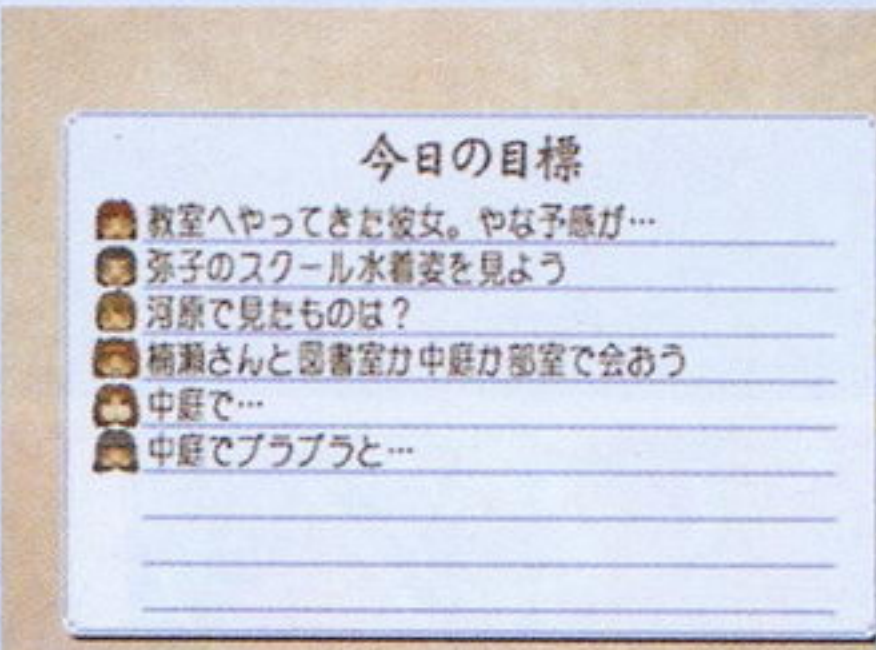 今日の目標
教室へやってきた彼女。やな予感が…
弥子のスクール水着姿を見よう
河原で見たものは？
楠瀬さんと図書室か中庭か部室で会おう
中庭で…
中庭でブラブラと…